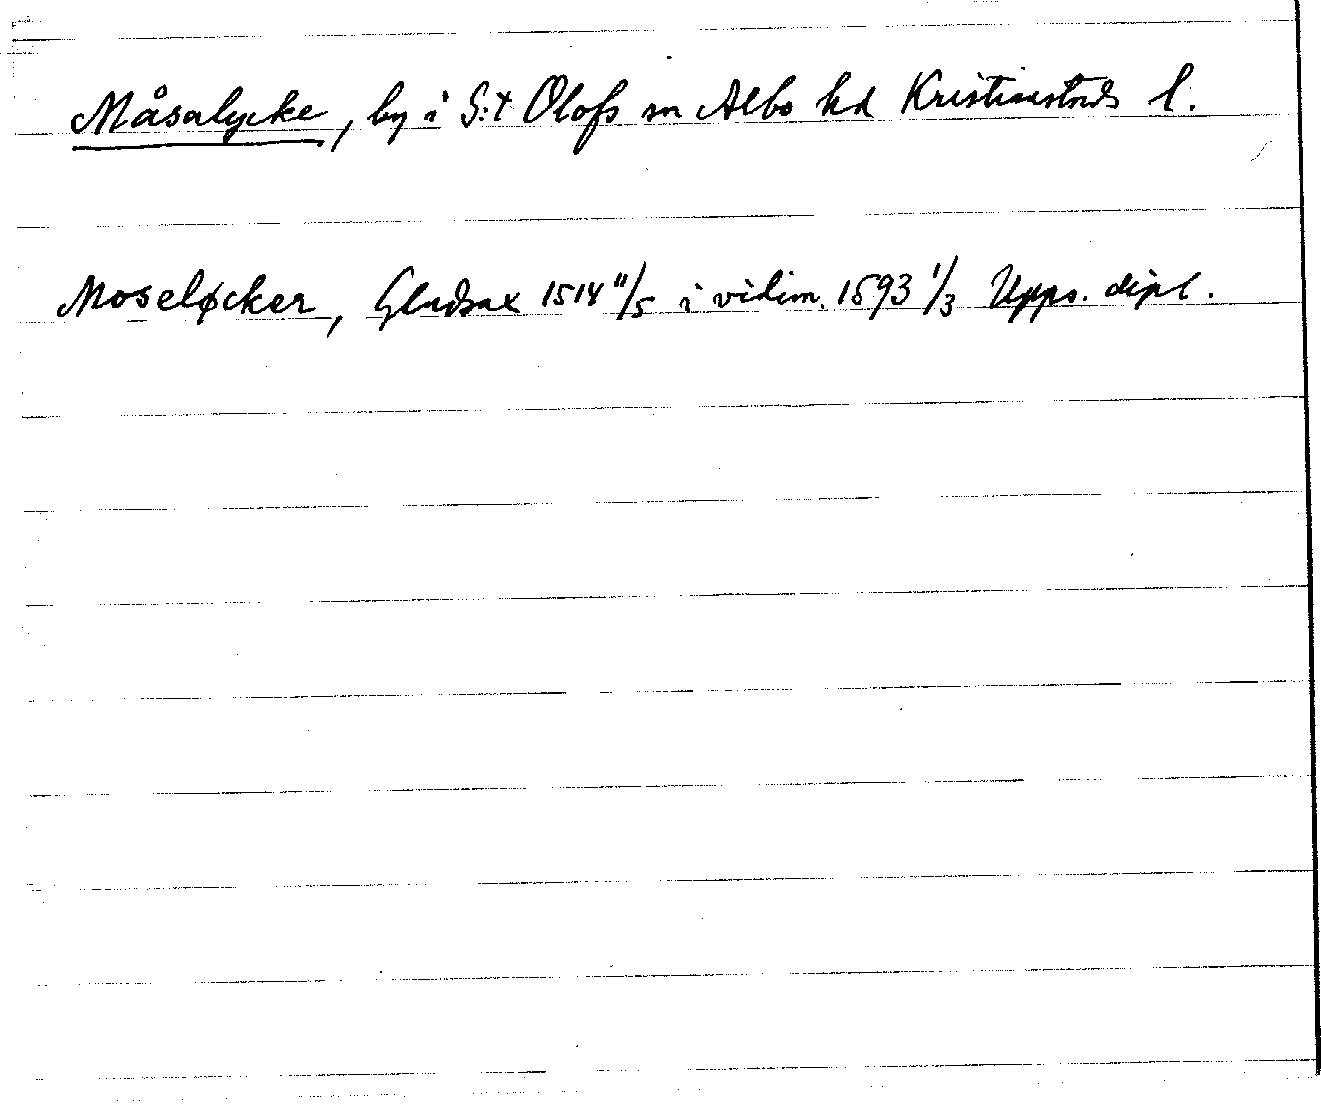 Måsalycke, by i S:t Olofs sn Albo hd Kristianstads l.
Moseløcker, Gladsax 1514 11/5 i vidim. 1593 1/3 Upps. dipl.